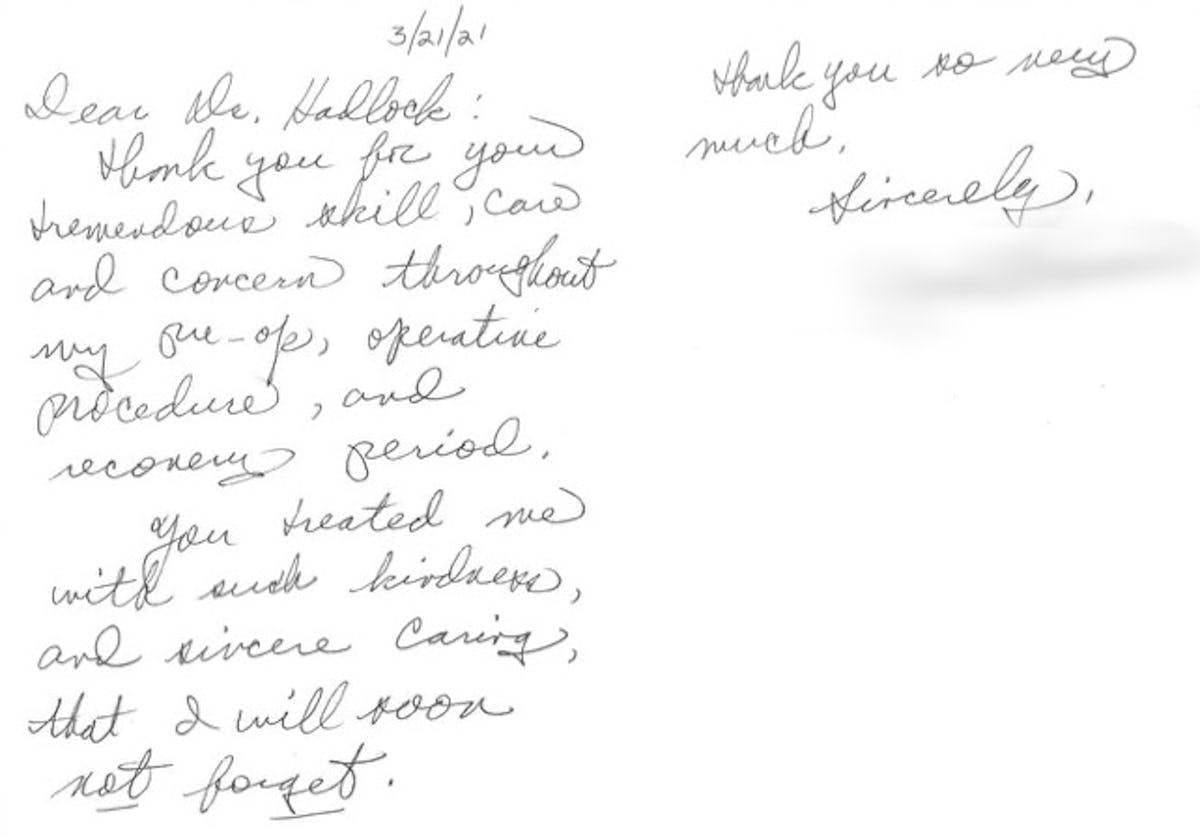 3/21/21
Dear Dr. Hadlock:
Thank you for your
tremendous skill, care
and concern throughout
my pre-op, operative
procedure, and
recovery period.
You treated me
with such kindness,
and sincere caring,
that I will soon
not forget.
Thank you so very
much.
Sincerely,